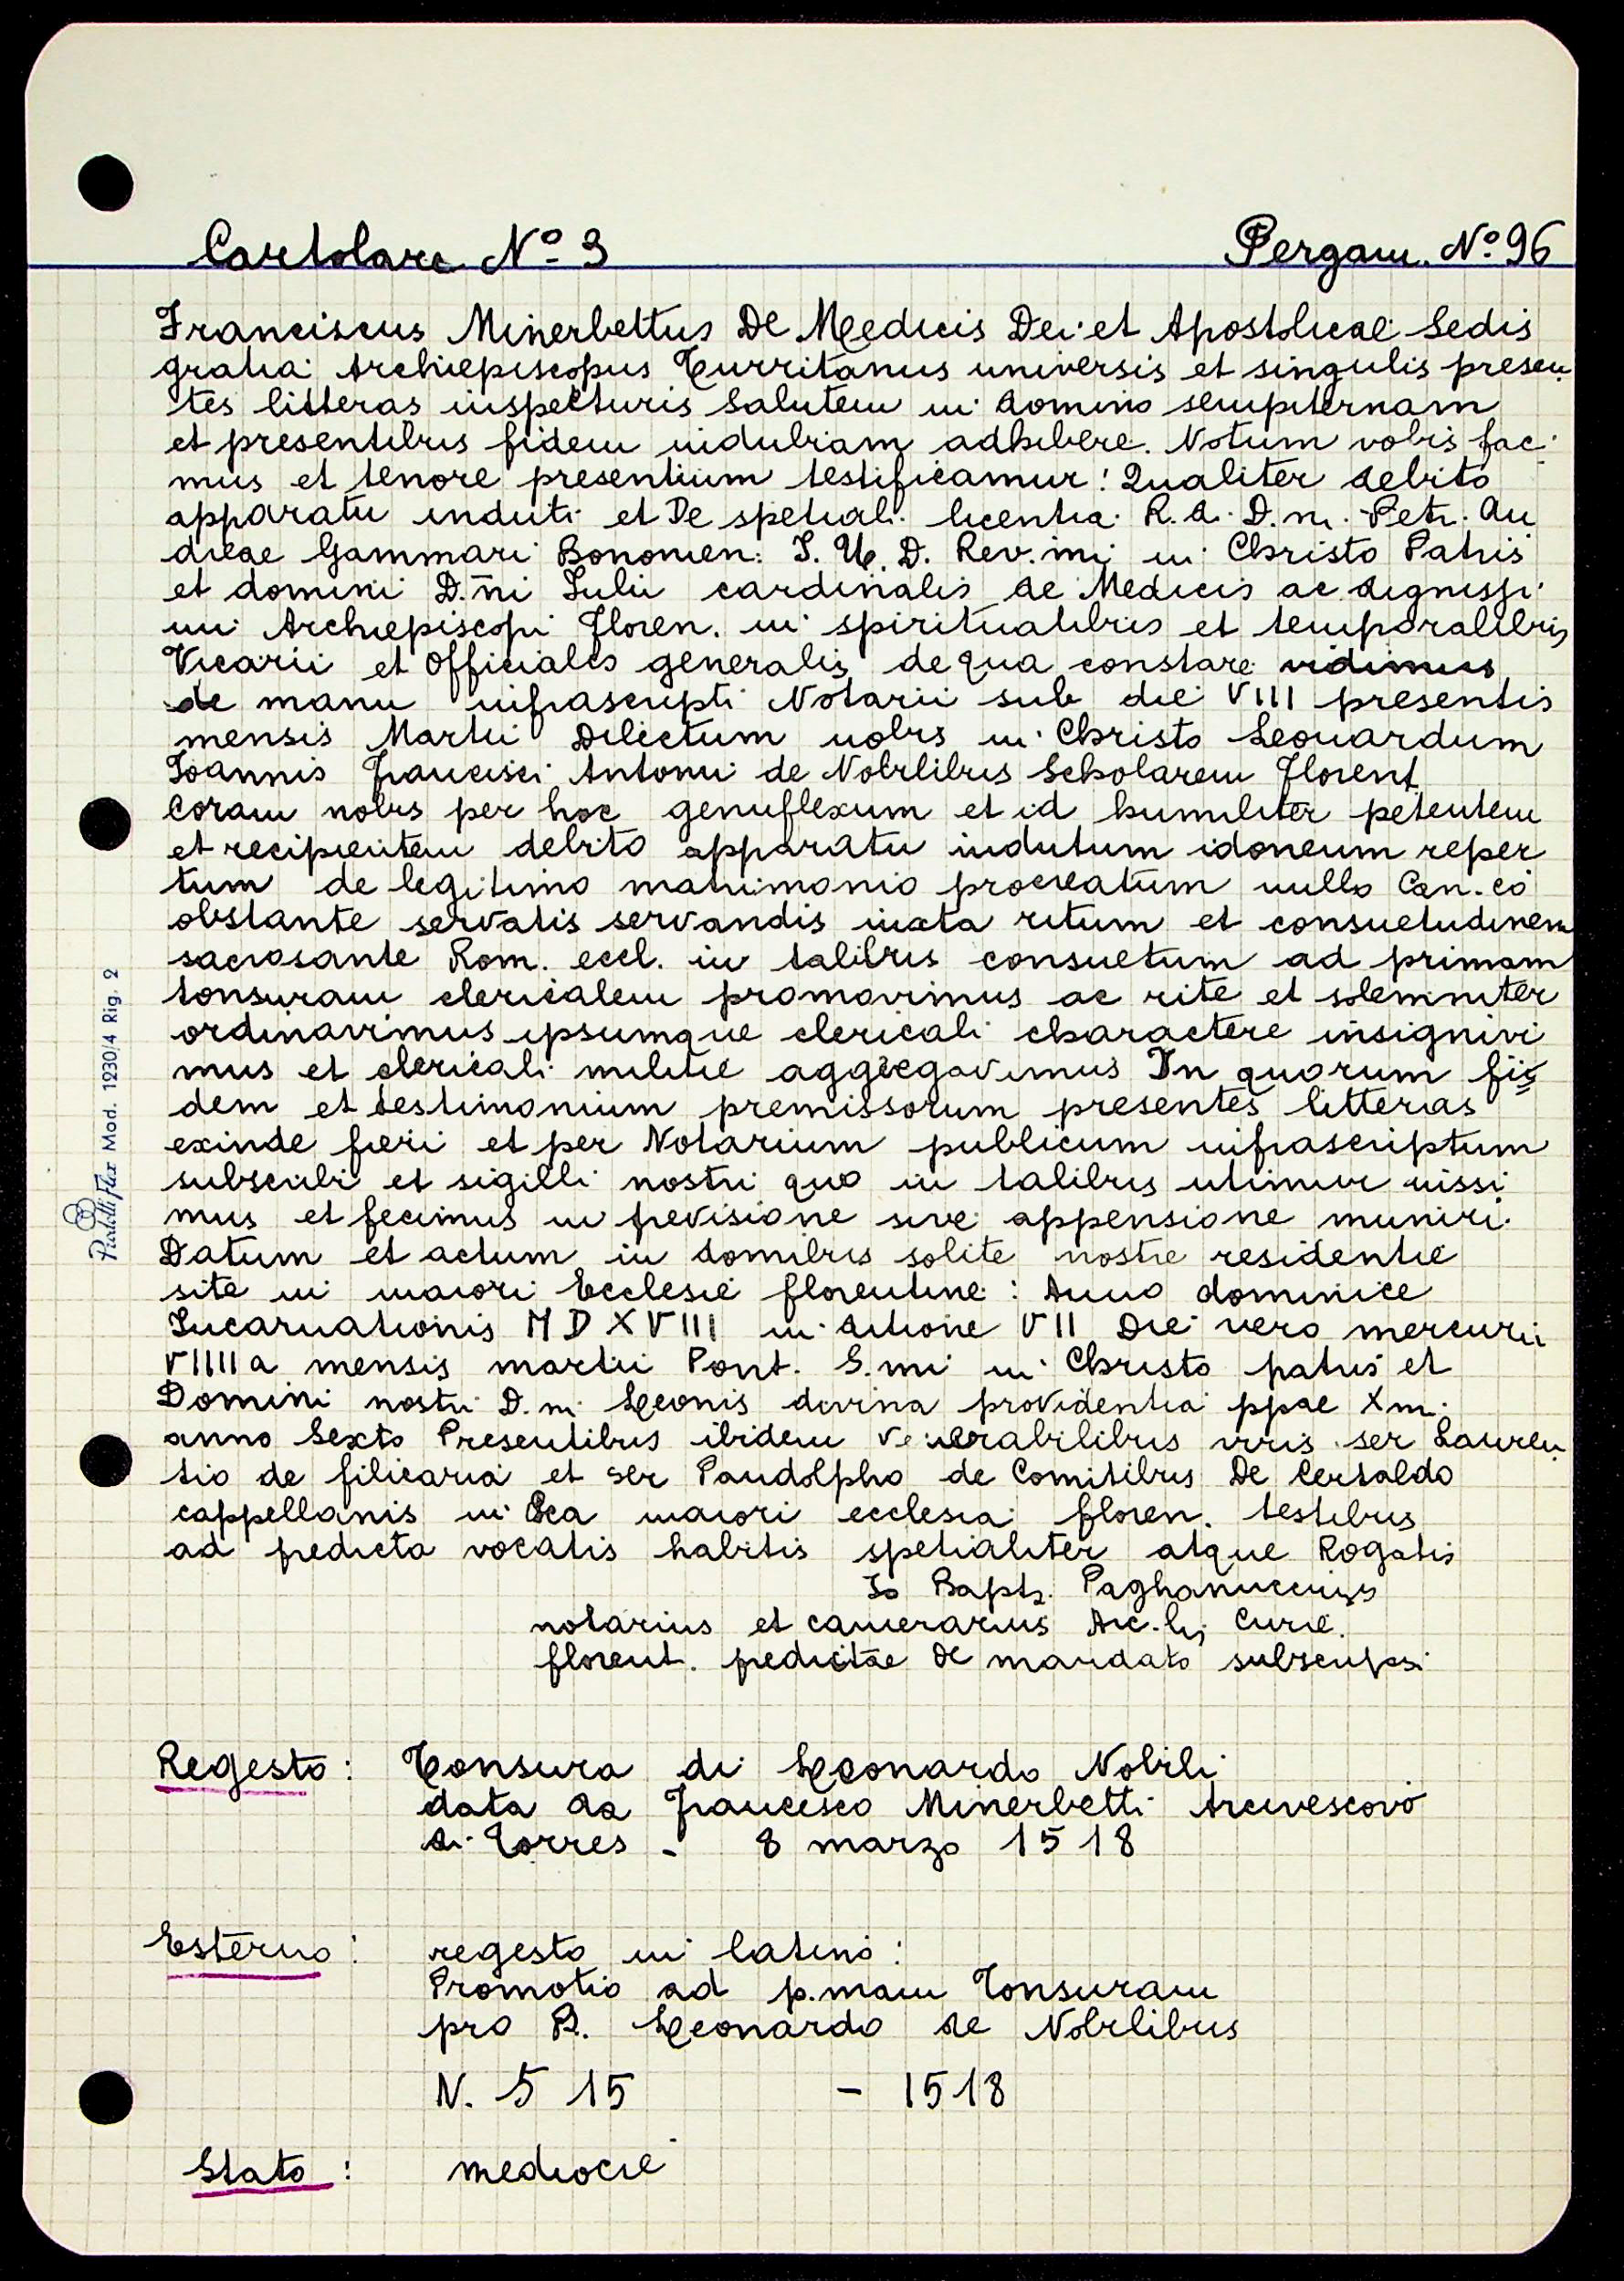 Cartolare N° 3 Pergam. N° 96
Franciscus Minerbettus De Medicis Dei et Apostolicae Sedis
gratia Archiepiscopus Turritanus universis et singulis presen
tes litteras inspecturis salutem in domino sempiternam
et presentibus fidem indubiam adhibere. Notum vobis faci
mus et tenore presentium testificamur: Qualiter debito
apparatu induti et De spetiali licentia R. d. D. ni. Petri An
dreae Gammari Bononien: J. U. D. Rev.mi in Christo Patris
et domini D.ni Julii cardinalis de Medicis ac dignissi
mi Archiepiscopi Floren. in spiritualibus et temporalibus
Vicarii et Officiales generalis de qua constare vidimus
de manu infrascripti Notarii sub die VIII presentis
mensis Martii Dilectum nobis in Christo Leonardum
Joannis Francisci Antonii de Nobilibus Scholarem Florent
coram nobis per hoc genuflexum et id humiliter petentem
et recipientem debito apparatu indutum idoneum reper
tum de legitimo matrimonio procreatum nullo Can.co
obstante servatis servandis iuxta ritum et consuetudinem
sacrosante Rom. eccl. in talibus consuetum ad primam
tonsuram clericalem promovimus ac rite et solemniter
ordinavimus ipsumque clericali charactere insignivi
mus et clericali militie aggregavimus In quorum fi
dem et testimonium premissorum presentes litteras
exinde fieri et per Notarium publicum infrascriptum
subscribi et sigilli nostri quo in talibus utimur iussi
mus et fecimus in previsione sive appensione muniri.
Datum et actum in domibus solite nostre residentie
site in maiori Ecclesie florentine: Anno dominice
Incarnationis MDXVIII in ditione VII Die vero mercurii
VIIIIa mensis martii Pont. S.mi in Christo patris et
Domini nostri D. ni Leonis divina providentia ppae Xmi
anno Sexto Presentibus ibidem venerabilibus viris ser Lauren
tio de filicaria et ser Pandolpho de Comitibus De Certaldo
cappellanis in Sca maiori ecclesia floren. testibus
ad predicta vocatis habitis spetialiter atque Rogatis
Jo Bapta. Paghanuccius
notarius et camerarius Arc.lis Curie.
florent. predictae de mandato subscripsi
Regesto: Tonsura di Leonardo Nobili
data da Francesco Minerbetti Arcivescovo
di Torres - 8 marzo 1518
Esterno: regesto in latino:
Promotio ad p.mam Tonsuram
pro D. Leonardo de Nobilibus
N. 5 15 - 1518
Stato: mediocre
Mod. 1230/4 Rig. 2